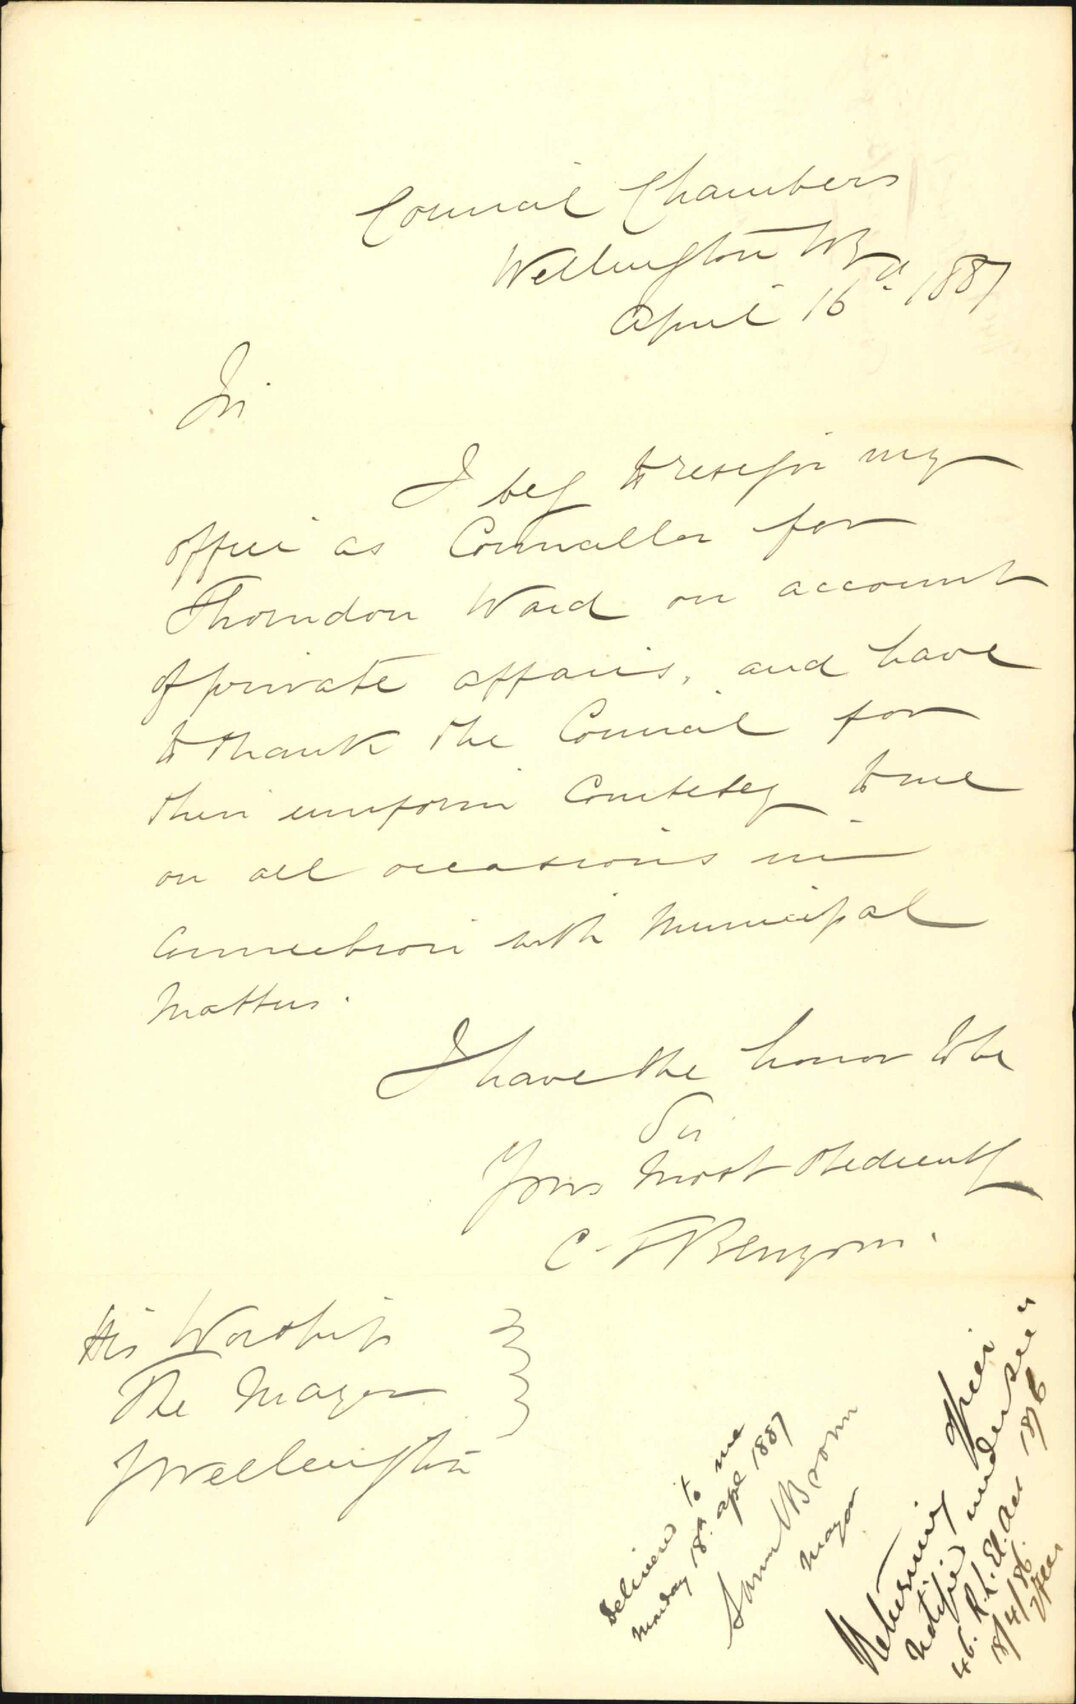 Council Chambers
Wellington
April 16 1887
Sir
I beg to resign my
office as Councillor for
Thorndon Ward on account
of private affairs, and have
to thank the Council for
their uniform Courtesy to me
on all occasions in
Connection with Municipal
Matters.
I have the honor to be
Sir
Yours Most Obediently
C
His Worship
The Mayor
Wellington
Delivered to me
Monday 18th Apl 1887
Saml Brown
Mayor
Returning Officer
notified under Sec
46. R.L. El. Act 1876
18/4/86.